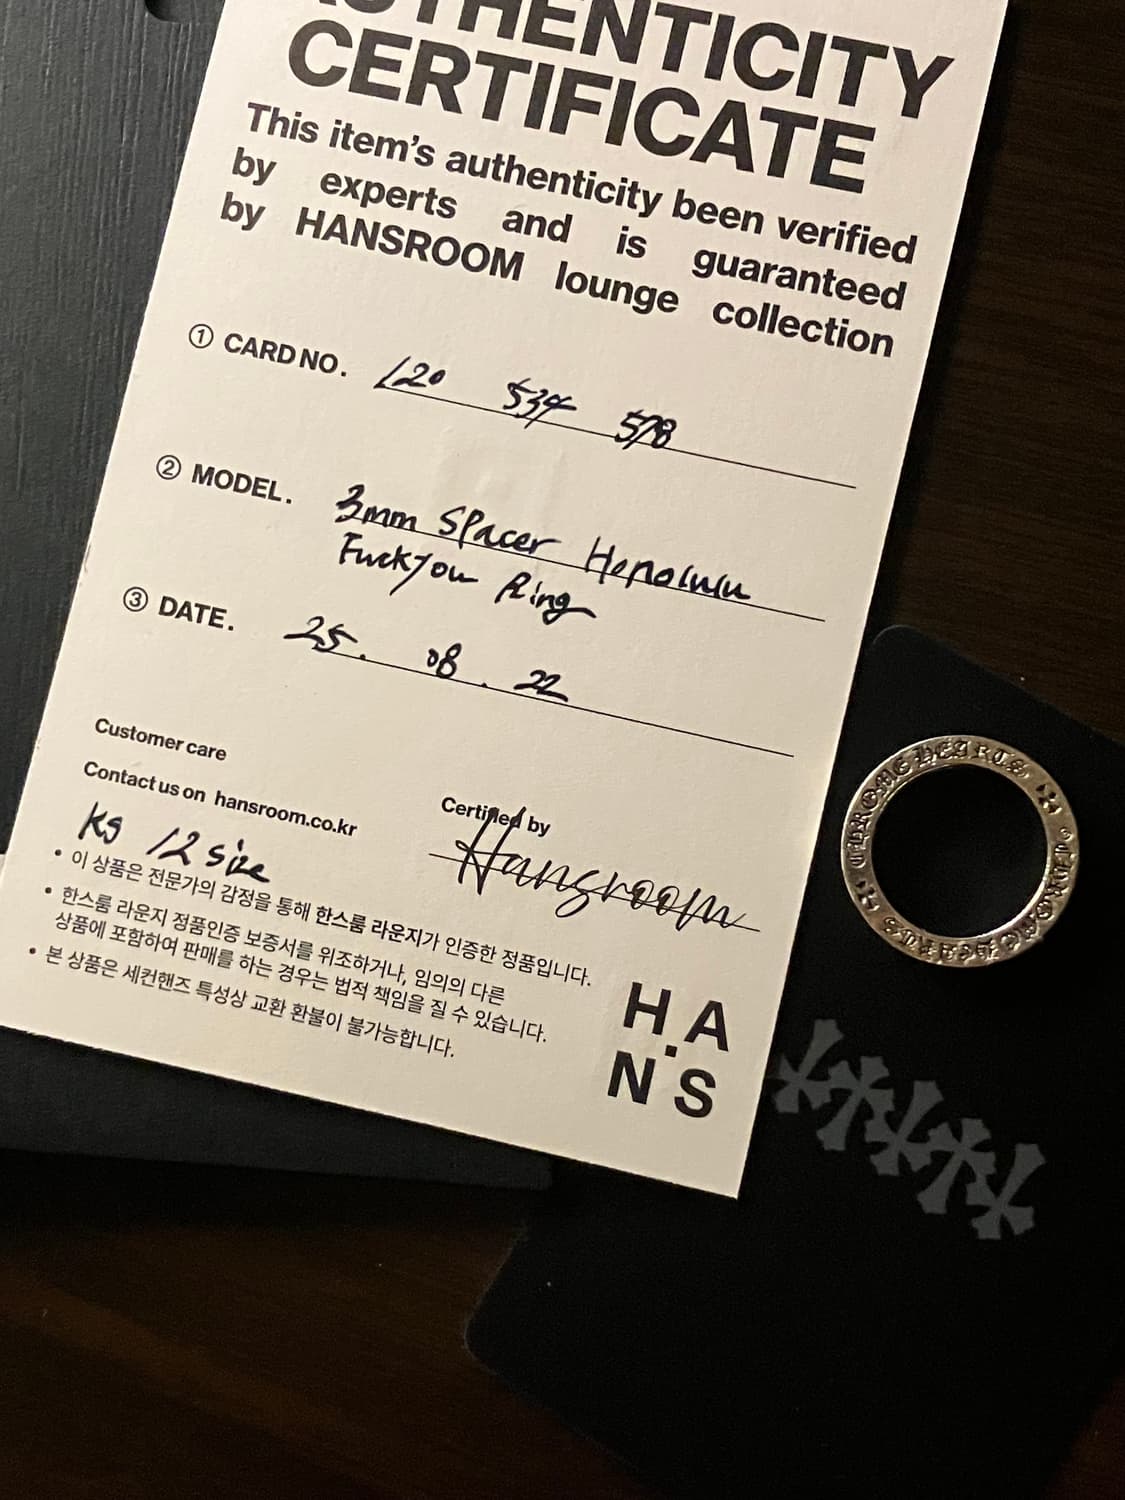 AUTHENTICITY
CERTIFICATE
This item's authenticity been verified
by experts and is guaranteed
by HANSROOM lounge collection
① CARD NO. 120 534 578
② MODEL. 3mm Spacer Honolulu
Fuck you Ring
③ DATE. 25. 08. 22
Customer care
Contact us on hansroom.co.kr
Certified by
Hansroom
KS 12 size
• 이 상품은 전문가의 감정을 통해 한스룸 라운지가 인증한 정품입니다.
• 한스룸 라운지 정품인증 보증서를 위조하거나, 임의의 다른
상품에 포함하여 판매를 하는 경우는 법적 책임을 질 수 있습니다.
• 본 상품은 세컨핸즈 특성상 교환 환불이 불가능합니다.
H.A
N.S
CHROME HEARTS
CHROME HEARTS